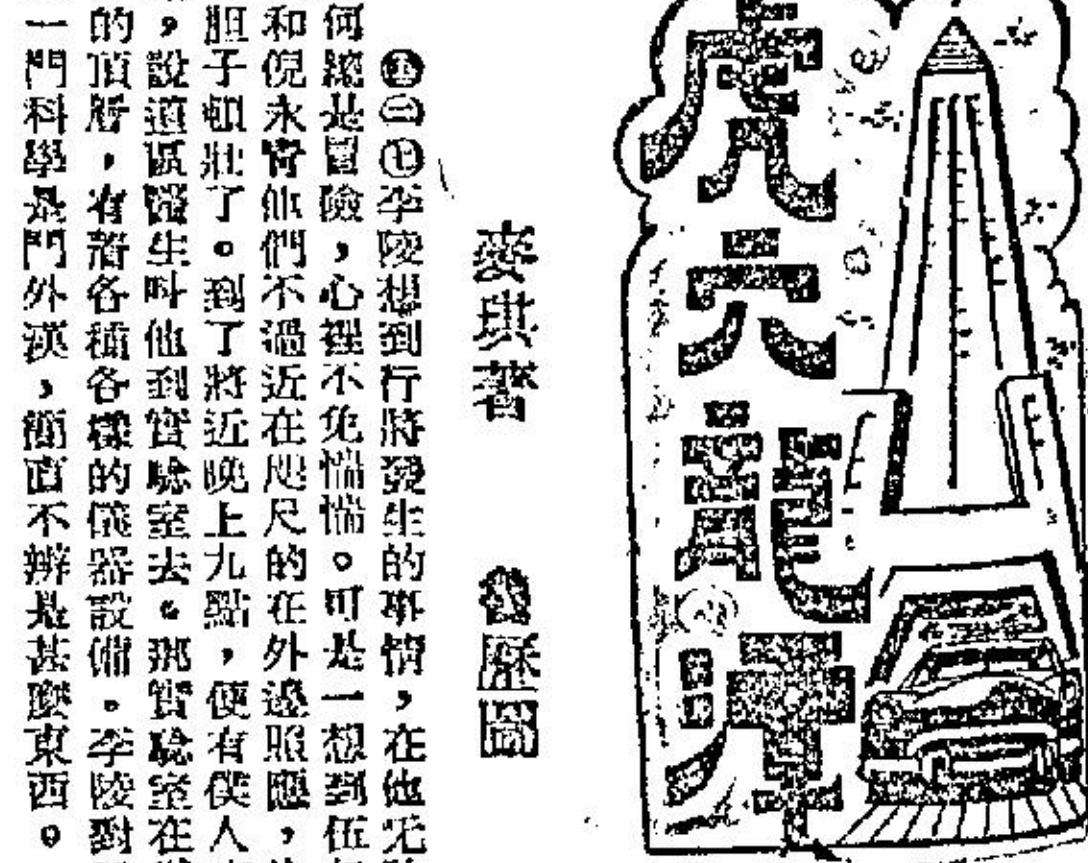 虎穴龍潭
麥琪著　歷圖
㊄㊁㊆李陵想到行將發生的事情，在他无
何總是冒險，心裡不免惴惴。可是一想到伍
和倪永青他們不過近在咫尺的在外邊照應，
胆子頓壯了。到了將近晚上九點，便有僕人
，說道區醫生叫他到實驗室去。那實驗室在
的頂層，有着各種各樣的儀器設備。李陵對
一門科學是門外漢，簡直不辨是甚麼東西。